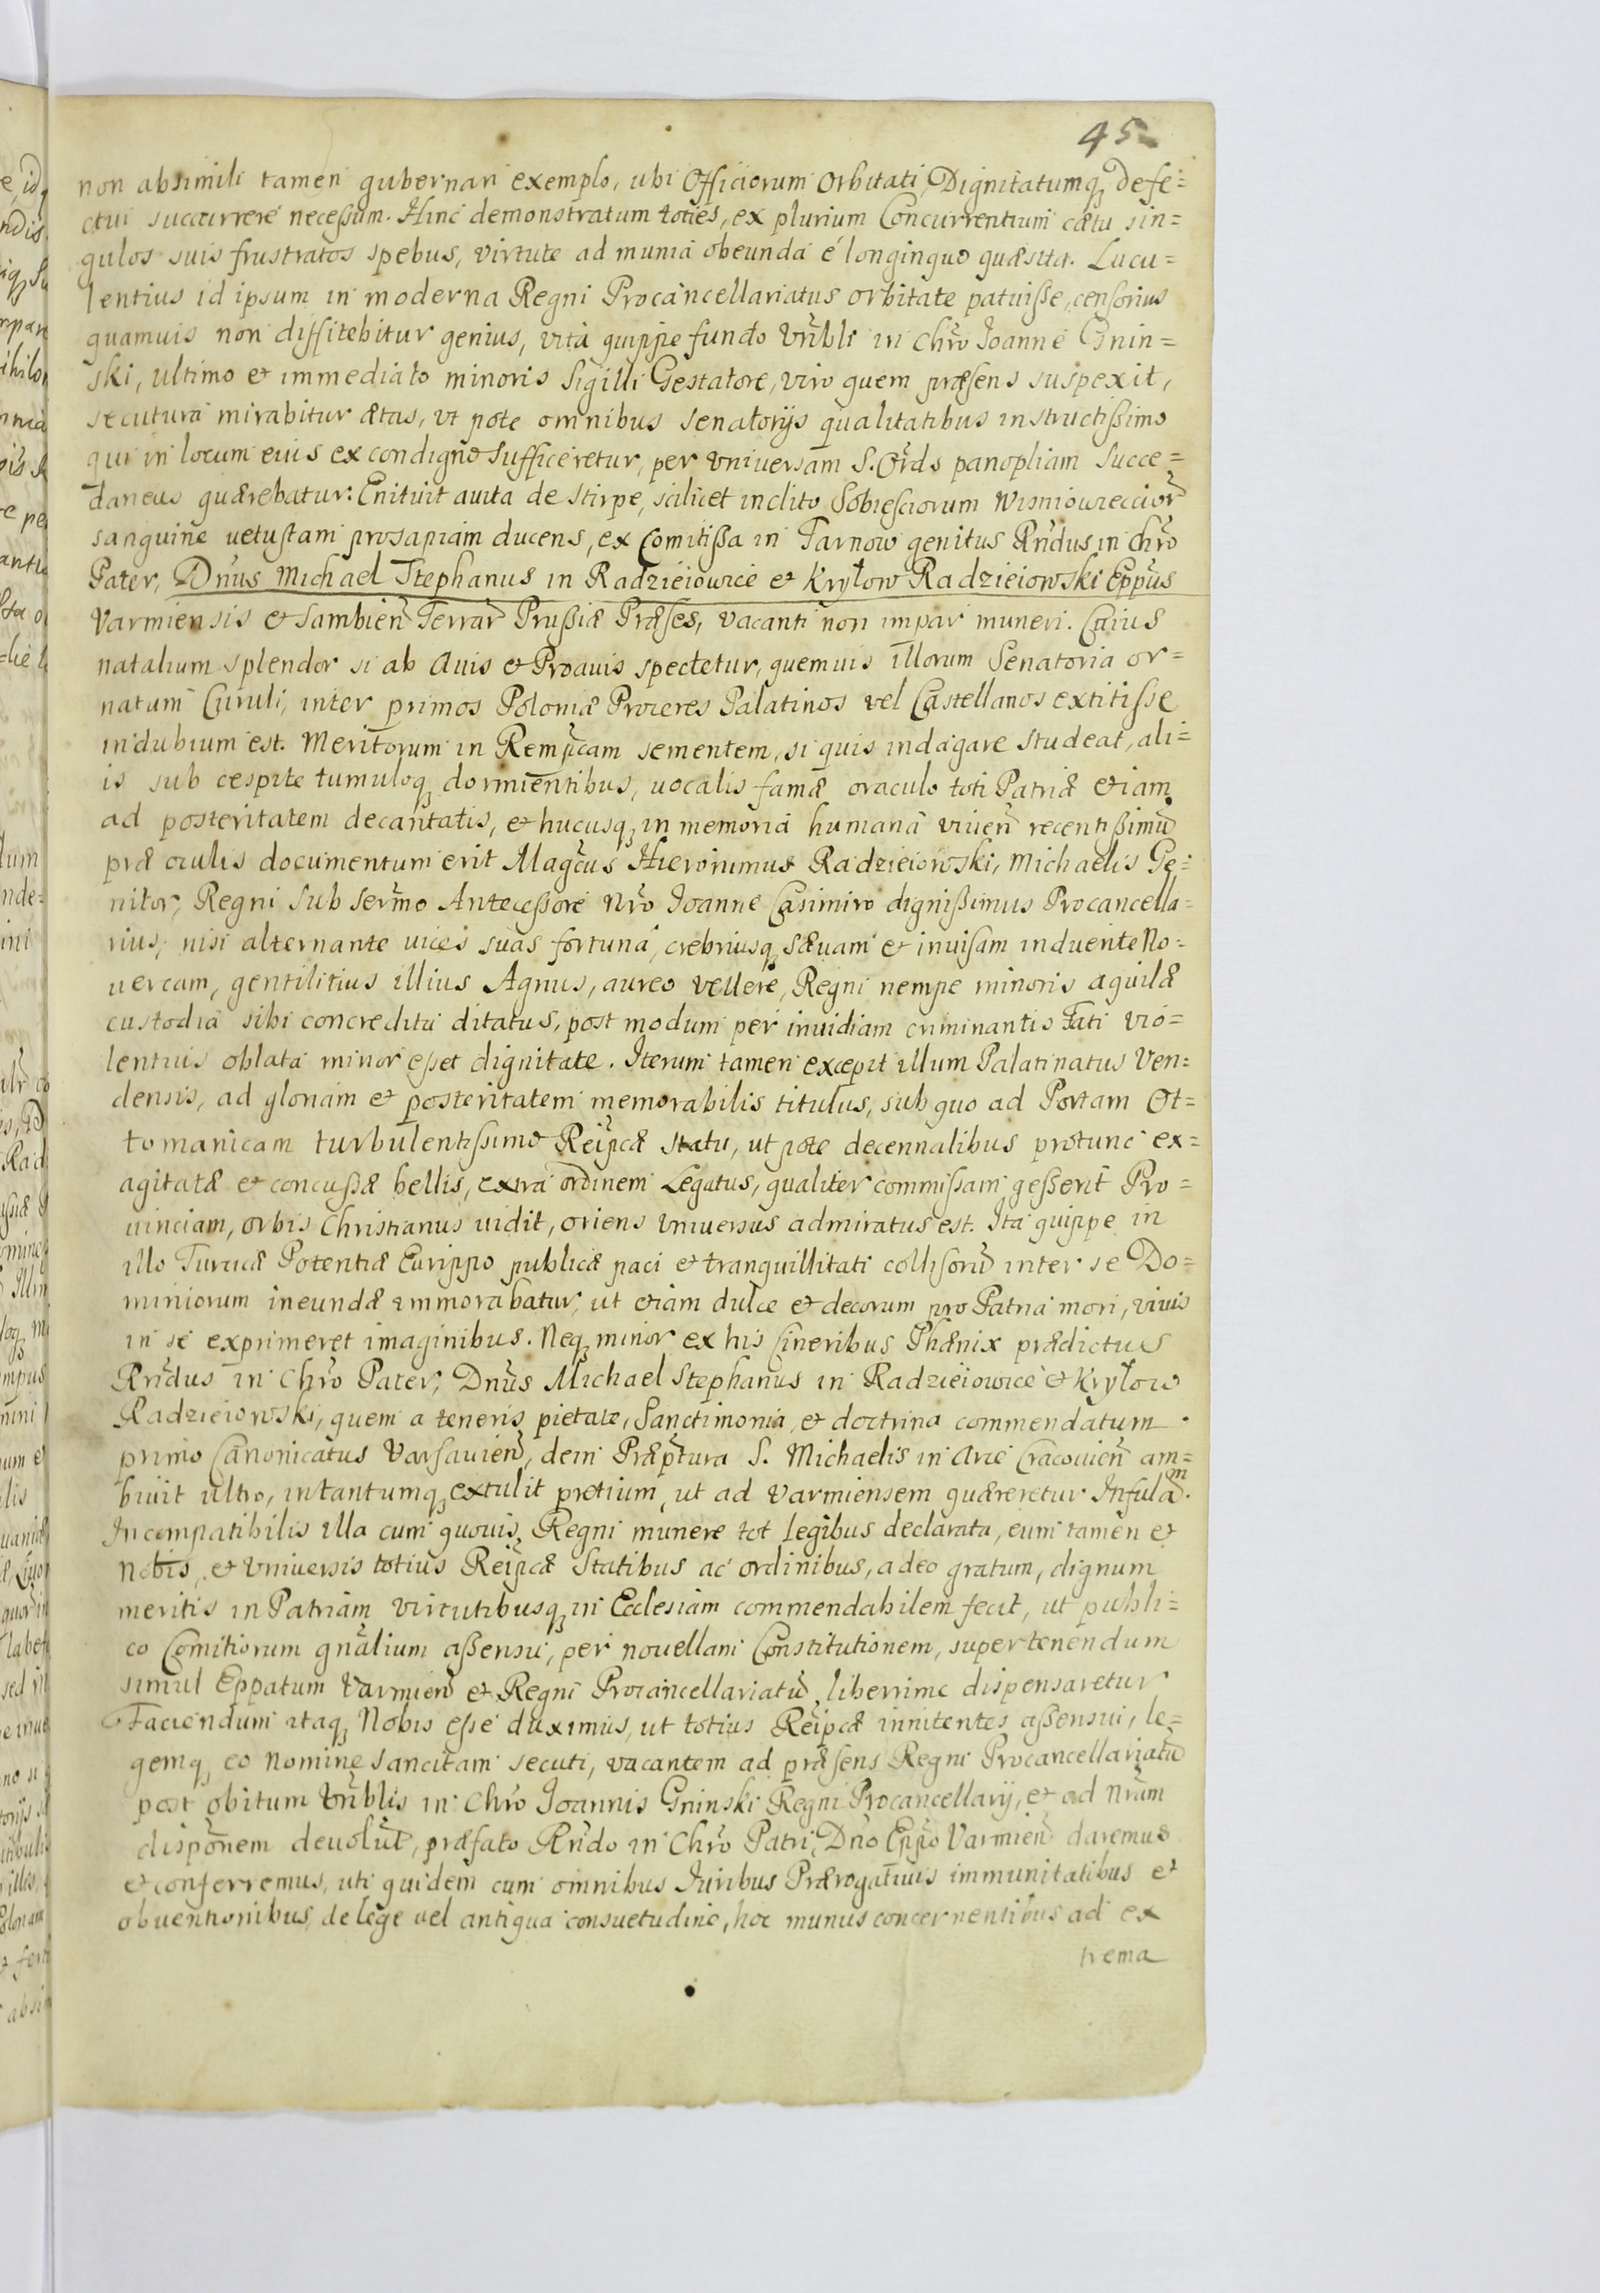 45
non absimili tamen gubernari exemplo, ubi Officiorum Orbitati, Dignitatumq; defe=
ctui succurrere necessum. Hinc demonstratum toties, ex plurium Concurrentium cætu sin=
gulos suis frustratos spebus, virtute ad munia obeunda é longinquo quæsita. Lucu=
lentius id ipsum in moderna Regni Procancellariatus orbitate patuisse, censorius
quamuis non diffitebitur genius, vita quippe functo Vrñbli in Chr̃o Joanne Gnin=
ski, ultimo et immediato minoris Sigilli Gestatore, viro quem præsens suspexit,
secutura mirabitur ætas, vt pote omnibus senatorijs qualitatibus instructissimo
qui in locum eius ex condigno sufficeretur, per vniversam S. Ord̃s panopliam succe=
daneus quærebatur: Enituit auita de stirpe, scilicet inclito Sobiesciorum Wisniowieccior̃
sanguine uetustam prosapiam ducens, ex Comitissa in Tarnow genitus Rñdus in Chr̃o
Pater, Dñus Michael Stephanus in Radzieiowice et Krylow Radzieiowski Eppũs
Varmiensis et Sambieñ Terrar̃ Prussiæ Præses, vacanti non impar muneri. Cuius
natalium splendor si ab Auis et Proauis spectetur, quemuis illorum Senatoria or=
natum Curuli, inter primos Poloniæ Proceres Palatinos vel Castellanos extitisse
indubium est. Meritorum in Remp̃cam sementem, si quis indagare studeat, ali=
is sub cespite tumuloq; dormientibus, uocalis famæ oraculo toti Patriæ etiam
ad posteritatem decantatis, et hucusq; in memoria humana viueñ recentissimũ
præ oculis documentum erit Magc̃us Hieronimus Radzieiowski, Michaelis Ge=
nitor, Regni sub Serm̃o Antecessore Nr̃o Joanne Casimiro dignissimus Procancella=
rius, nisi alternante uices suas fortuna, crebriusq; sæuam et inuisam induente No=
uercam, gentilitius illius Agnus, aureo vellere, Regni nempe minoris aquilæ
custodia sibi concredita ditatus, post modum per inuidiam criminantis Fati vio=
lentius oblata minor esset dignitate. Iterum tamen excepit illum Palatinatus Ven=
densis, ad gloriam et posteritatem memorabilis titulus, sub quo ad Portam Ot=
tomanicam turbulentissimo Reip̃cæ statu, ut pote decennalibus protunc ex=
agitatæ et concussæ bellis, extra ordinem Legatus, qualiter commissam gesserit Pro=
uinciam, orbis Christianus uidit, oriens vniuersus admiratus est. Ita quippe in
illo Turcicæ Potentiæ Eurippo publicæ paci et tranquillitati collisorũ inter se Do=
miniorum ineundæ immorabatur, ut etiam dulce et decorum pro Patria mori, vivis
in se exprimeret imaginibus. Neq; minor ex his Cineribus Phænix prædictus
Rñdus in Chr̃o Pater, Dñus Michael Stephanus in Radzieiowice et Krylow
Radzieiowski, quem a teneris pietate, Sanctimonia, et doctrina commendatum
primo Canonicatus Varsauieñ, dein Præp̃tura S. Michaelis in Arce Cracouieñ am=
biuit ultro, intantumq; extulit pretium, ut ad Varmiensem quæreretur Infulam.
Incompatibilis illa cum quouis Regni munere tot legibus declarata, eum tamen et
Nobis, et vniuersis totius Reip̃cæ Statibus ac ordinibus, adeo gratum, dignum
meritis in Patriam virtutibusq; in Ecclesiam commendabilem fecit, ut publi=
co Comitiorum gñalium assensu, per nouellam Constitutionem, super tenendum
simul Eppatum Varmieñ et Regni Procancellariatũ liberrime dispensaretur
Faciendum itaq; Nobis esse duximus, ut totius Reip̃cæ innitentes assensui, le=
gemq; eo nomine sancitam secuti, vacantem ad præsens Regni Procancellariatũ
post obitum Vrñblis in Chr̃o Joannis Gninski Regni Procancellarij, et ad Nr̃am
disponem deuolut̃, præfato Rñdo in Chr̃o Patri, Dño Epp̃o Varmieñ daremus
et conferremus, uti quidem cum omnibus Iuribus Prærogatiuis immunitatibus et
obuentionibus, de lege vel antiqua consuetudine, hoc munus concernentibus ad ex
trema